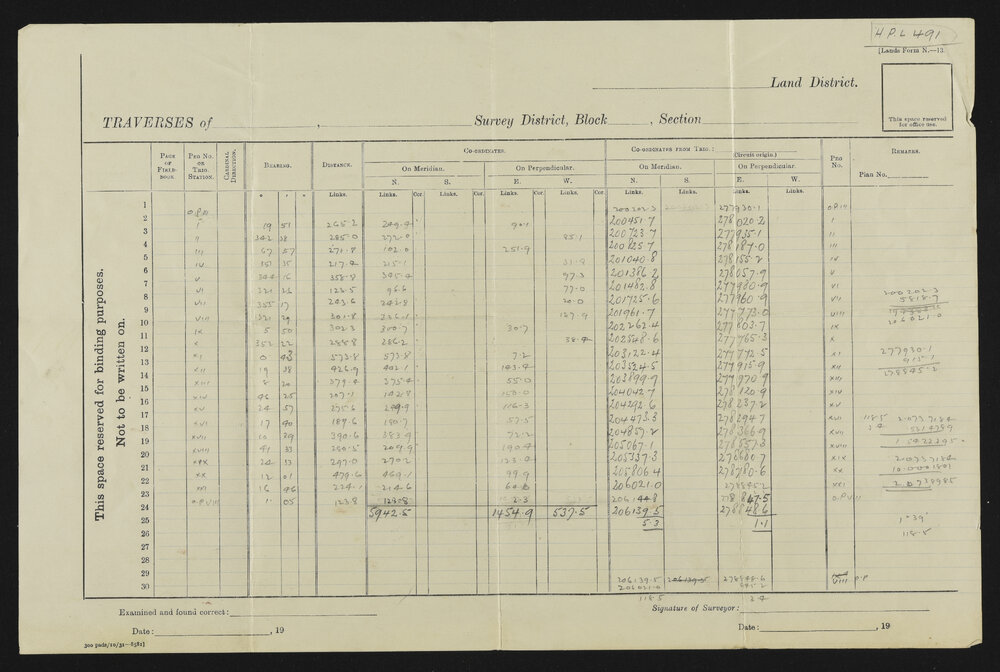 HPL 491
[Lands Form N.—13.
Land District.
This space reserved for office use.
TRAVERSES of , Survey District, Block , Section
PAGE OF FIELD-BOOK
PEG NO. OR TRIG. STATION.
CARDINAL DIRECTION.
BEARING.
DISTANCE.
CO-ORDINATES.
On Meridian. On Perpendicular.
N. S. E. W.
CO-ORDINATES FROM TRIG.:
(Circuit origin.)
On Meridian. On Perpendicular.
N. S. E. W.
PEG NO.
REMARKS.
Plan No.
° ′ ″ Links. Links. Cor. Links. Cor. Links. Cor. Links. Links. Links. Links. Links.
1 200202.3 277930.1
2 I 19 51 265.2 249.4 90.1 200451.7 278020.2 I
3 II 342 38 285.0 272.0 85.1 200723.7 277935.1 II
4 III 67 57 271.8 102.0 251.9 200825.7 278187.0 III
5 IV 217.4 215.1 31.8 201040.8 278155.2 IV
6 V 344 16 358.8 345.4 97.3 201386.2 278057.9 V
7 VI 321 123.5 96.6 77.0 201482.8 277980.9 VI
8 VII 355 17 243.6 242.8 20.0 201725.6 277960.9 VII
9 VIII 321 29 301.8 236.1 187.9 201961.7 277773.0 VIII
10 IX 5 50 302.3 300.7 30.7 202262.4 277803.7 IX
11 X 352 22 288.8 286.2 38.4 202548.6 277765.3 X
12 XI 0 43 573.8 573.8 7.2 203122.4 277772.5 XI
13 XII 19 38 426.9 402.1 143.4 203524.5 277915.9 XII
14 XIII 8 20 379.4 375.4 55.0 203899.9 277970.9 XIII
15 XIV 46 25 207.1 142.8 150.0 204042.7 278120.9 XIV
16 XV 24 57 275.6 249.9 116.3 204292.6 278237.2 XV
17 XVI 17 40 189.6 180.7 57.5 204473.3 278294.7 XVI
18 XVII 10 390.6 383.9 72.2 204857.2 278366.9 XVII
19 XVIII 209.9 190.4 205067.1 278557.3 XVIII
20 XIX 24 297.0 270.2 123.4 205337.3 278680.7 XIX
21 XX 12 01 479.6 469.1 99.9 205806.4 278780.6 XX
22 XXI 16 46 224.1 214.6 206021.0 278845.2 XXI
23 1 05 123.8 123.8 2.3 206144.8 278847.5
24 5942.5 1454.9 537.5 206139.5 278848.6
25 5.3 1.1
26
27
28
29 206139.5 206139.5 278848.6
30 206021.0 VIII P.P
118.5
200202.3
5818.7
206021.0
277930.1
915.1
278845.2
118.5 2.0737184
1°39′
118.5
This space reserved for binding purposes.
Not to be written on.
Examined and found correct:
Signature of Surveyor:
Date: , 19
Date: , 19
300 pads/10/31—8581]